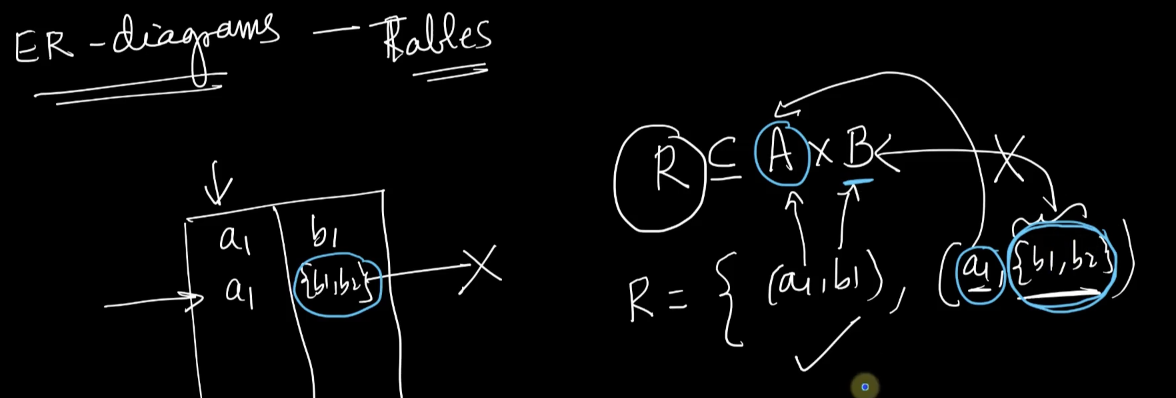 ER-diagrams — Tables
R ⊆ A × B
a1 b1
a1 {b1,b2}
R = { (a1,b1), (a1,{b1,b2})